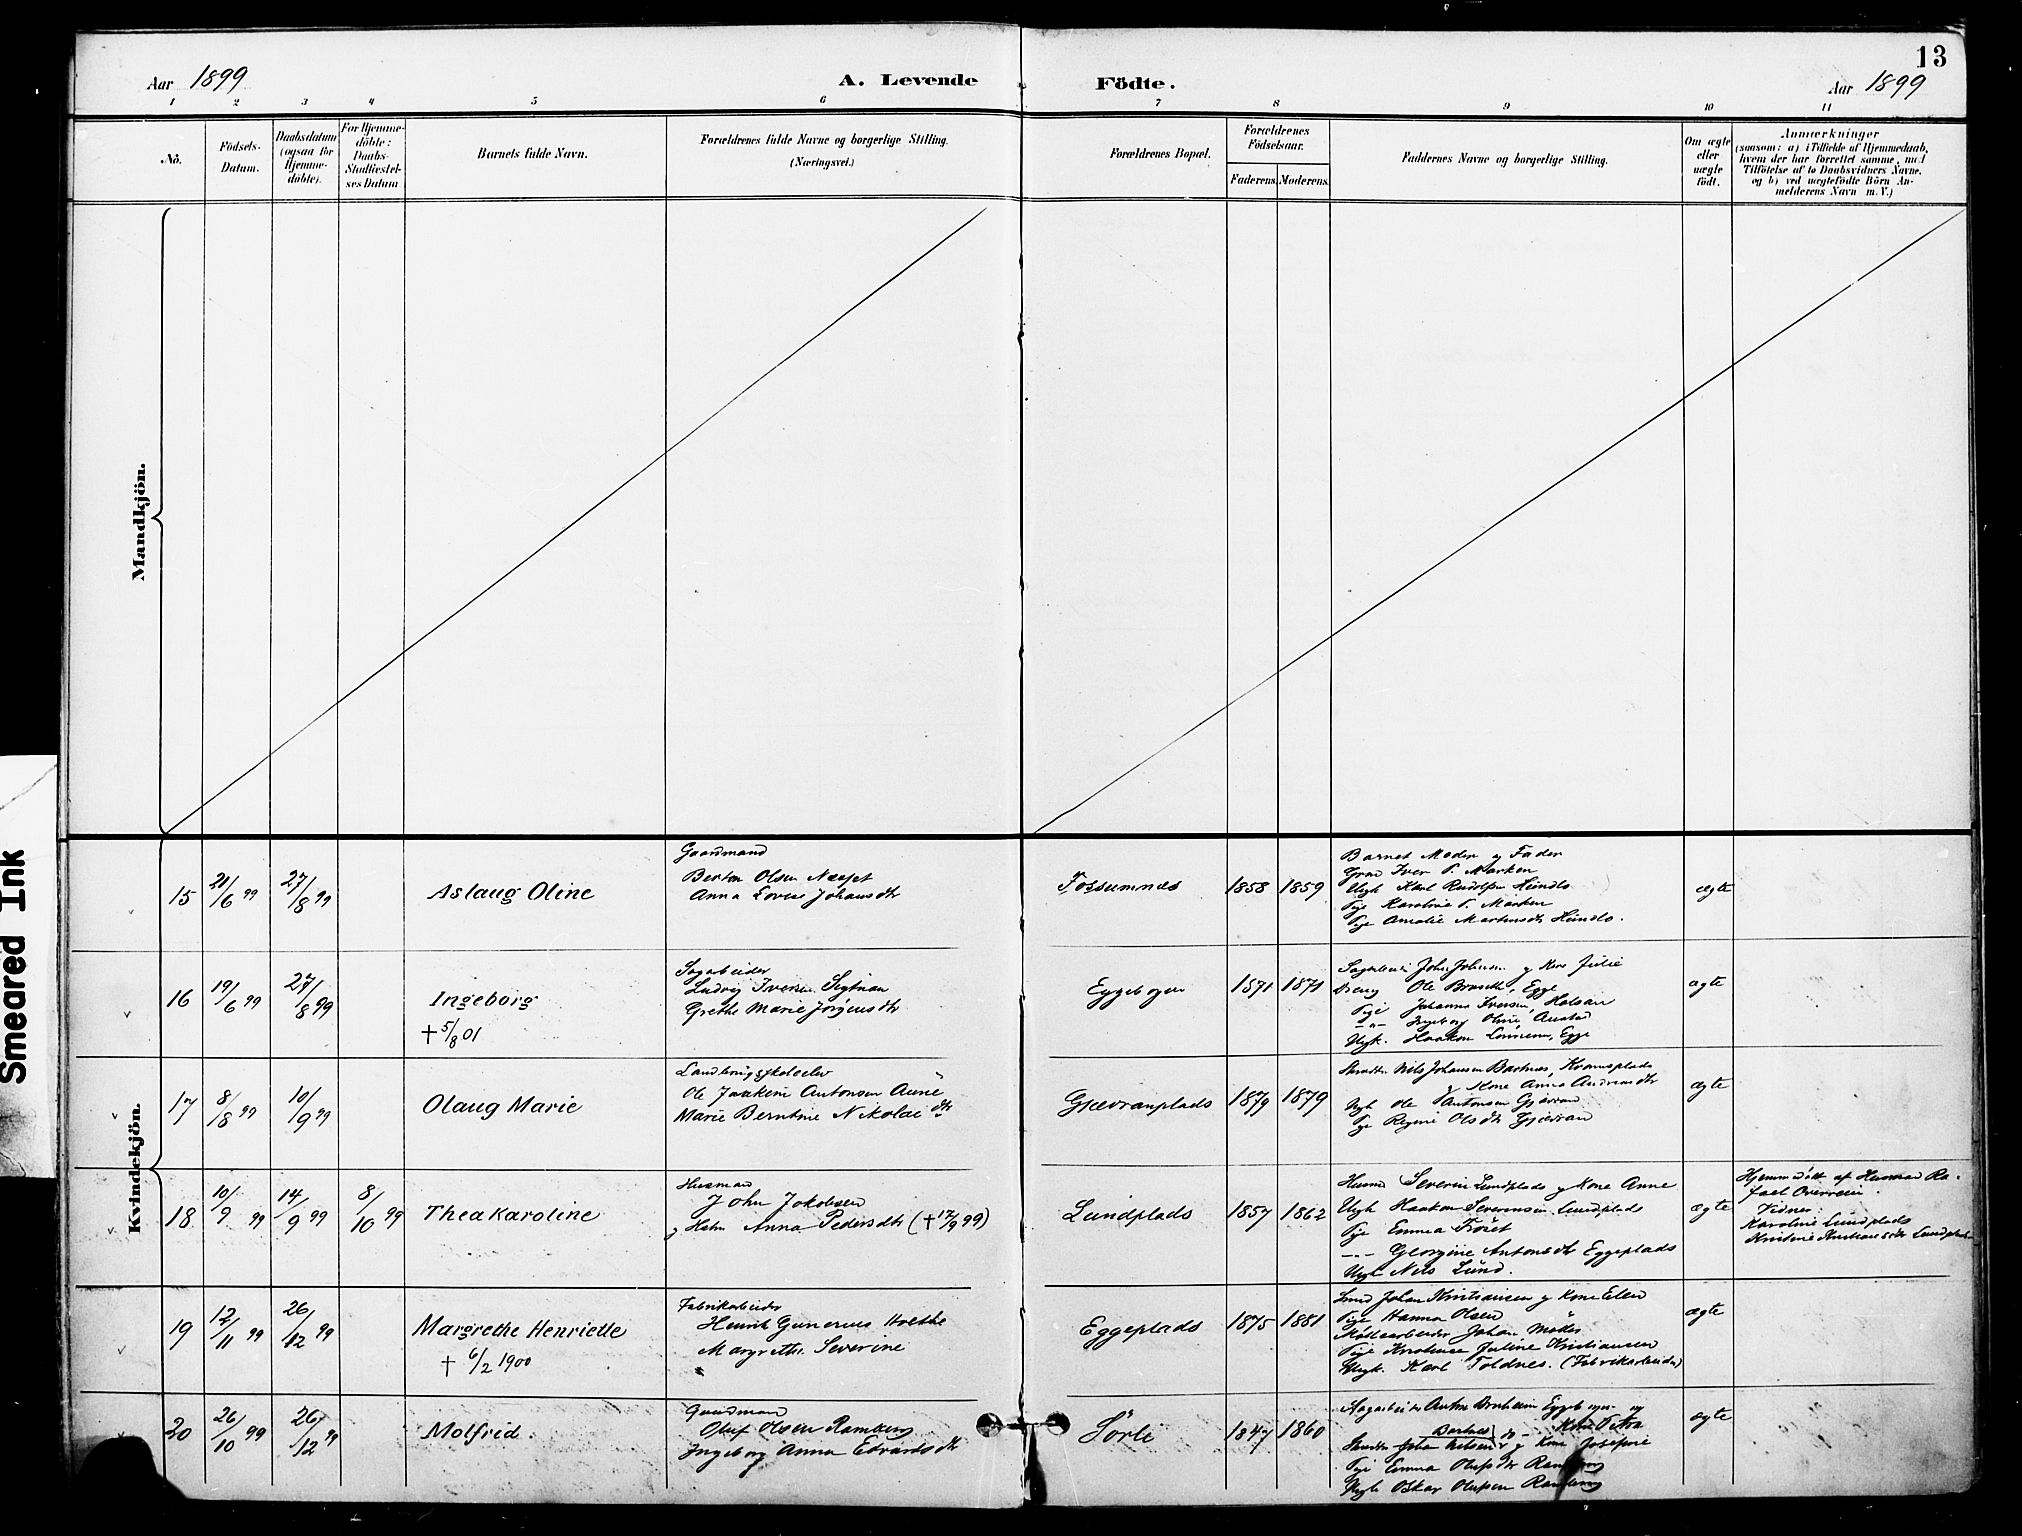 13
Aar 1899
A. Levende Födte.
Aar 1899
1 2 3 4 5 6 7 8 9 10 11
No.
Födsels-Datum.
Daabsdatum (ogsaa for Hjemme-döbte).
For Hjemme-döbte: Daabs-Stadfæstel-ses Datum
Barnets fulde Navn.
Forældrenes fulde Navne og borgerlige Stilling.
(Næringsvei.)
Forældrenes Bopæl.
Forældrenes Födselsaar.
Faderens. Moderens.
Faddernes Navne og borgerlige Stilling.
Om ægte eller uægte födt.
Anmærkninger
(saasom: a) i Tilfælde af Hjemmedaab,
hvem der har forrettet samme, med
Tilföielse af to Daabsvidners Navne,
og b) ved uægtefödte Börn An-
melderens Navn m. V.)
Mandkjön.
Kvindekjön.
Smeared Ink
15 21/6 99 27/8 99 Aslaug Oline
Gaardmand
Olsen
Anna Lovise Johansdt
Fossumnes 1858 1859
Barnet Moder og Fader
Iver P. Marken
Ungk Karl Rudolfsen
Pige Karoline P. Marken
Pige Amalie Martinsdt
ægte
16 19/6 99 27/8 99 Ingeborg
† 5/8 01
Sagarbeider
Ludvig Iversen
Grethe Marie Jörgensdt
Eggebogen 1871 1871
John Johnsen og Kone Julie
Ole Egge
Pige Johanna Iversen
Ingeborg Oline
Ungk. Haakon Egge
ægte
17 8/8 99 10/9 99 Olaug Marie
Landbrugsskoleelev
Ole Joakim Antonsen Aune
Marie Berntine Nikolaidt
Gjævranplads 1879 1879
Nils Johansen Bartnes,
og Kone Anna Andreasdt
Ungk Ole Antonsen Gjævran
Pige Regine Olsdt Gjævran
ægte
18 10/9 99 14/9 99 8/10 99 Thea Karoline
Husmand
John Jakobsen
og Hstru Anna Pedersdt († 17/9 99)
Lundplads 1857 1862
Husmd Severin Lundplads og Kone Anne
Ungk Haakon Severinsen Lundplads
Pige Emma
Georgine Antonsdt Eggeplads
Ungk Nils Lund.
ægte
Hjemmedöbt af Husmand Ra-
fael
Vidner:
Karoline Lundplads
Kristine Lundplads
19 12/11 99 26/12 99 Margrethe Henriette
† 6/2 1900
Fabrikarbeider
Henrik Gunerius
Margrethe Severine
Eggeplads 1875 1881
Johan Kristiansen og Kone Ellen
Pige Hanna Olsen
Johan
Pige Juline Kristiansen
Ungk. Karl Toldnes. (Fabrikarbeider)
ægte
20 26/10 99 26/12 99 Molfrid.
Gaardmand
Oluf Olsen Ramberg
Ingeborg Anna Edvardsdt
Sörli 1847 1860
Sagarbeider Anton og
Bartnes Kone Petra
Nilsen og Kone Josefine
Pige Emma Olufsdt Ramberg
Ungk Oskar Olufsen Ramberg
ægte